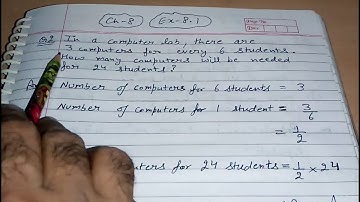 Ch-8 Ex-8.1
Q2 In a computer lab, there are
3 computers for every 6 students.
How many computers will be needed
for 24 students?
Number of computers for 6 students = 3
Number of computers for 1 student = 3/6
= 1/2
computers for 24 students = 1/2 × 24